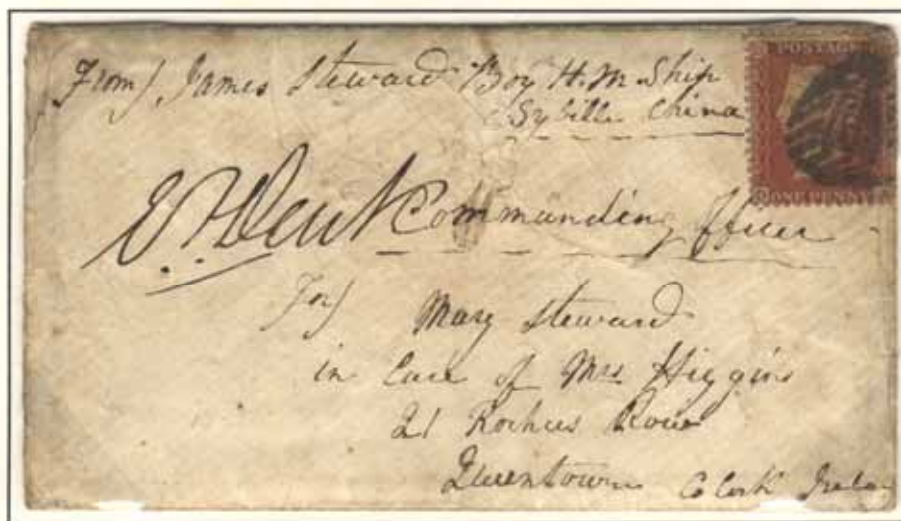 From) James Steward Boy H.M. Ship
Sybille China
POSTAGE
ONE PENNY
Commanding Officer
For) Mary Steward
in Care of Mrs Higgins
21 Roches Row
Queentown Co Cork